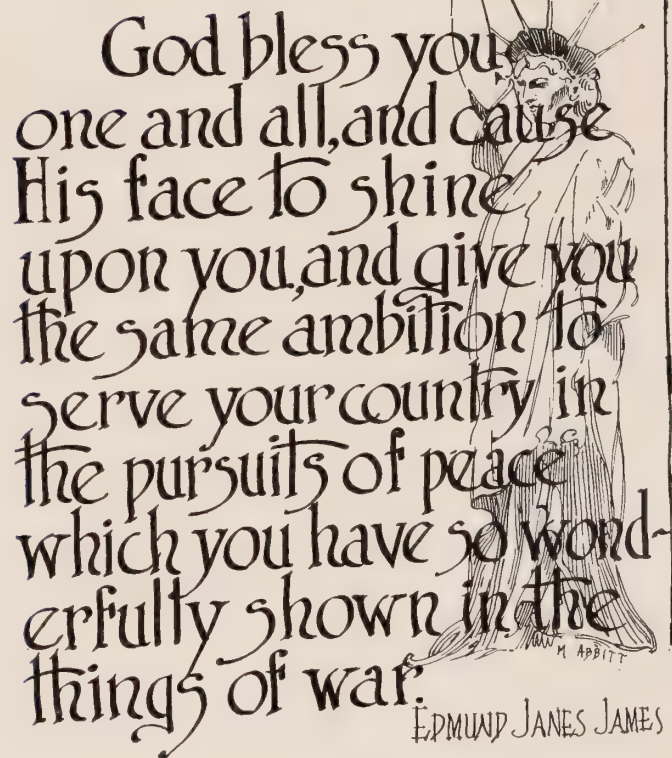 God bless you
one and all, and cause
His face to shine
upon you, and give you
the same ambition to
serve your country in
the pursuits of peace
which you have so wond-
erfully shown in the
things of war.
M ABBITT
EDMUND JANES JAMES